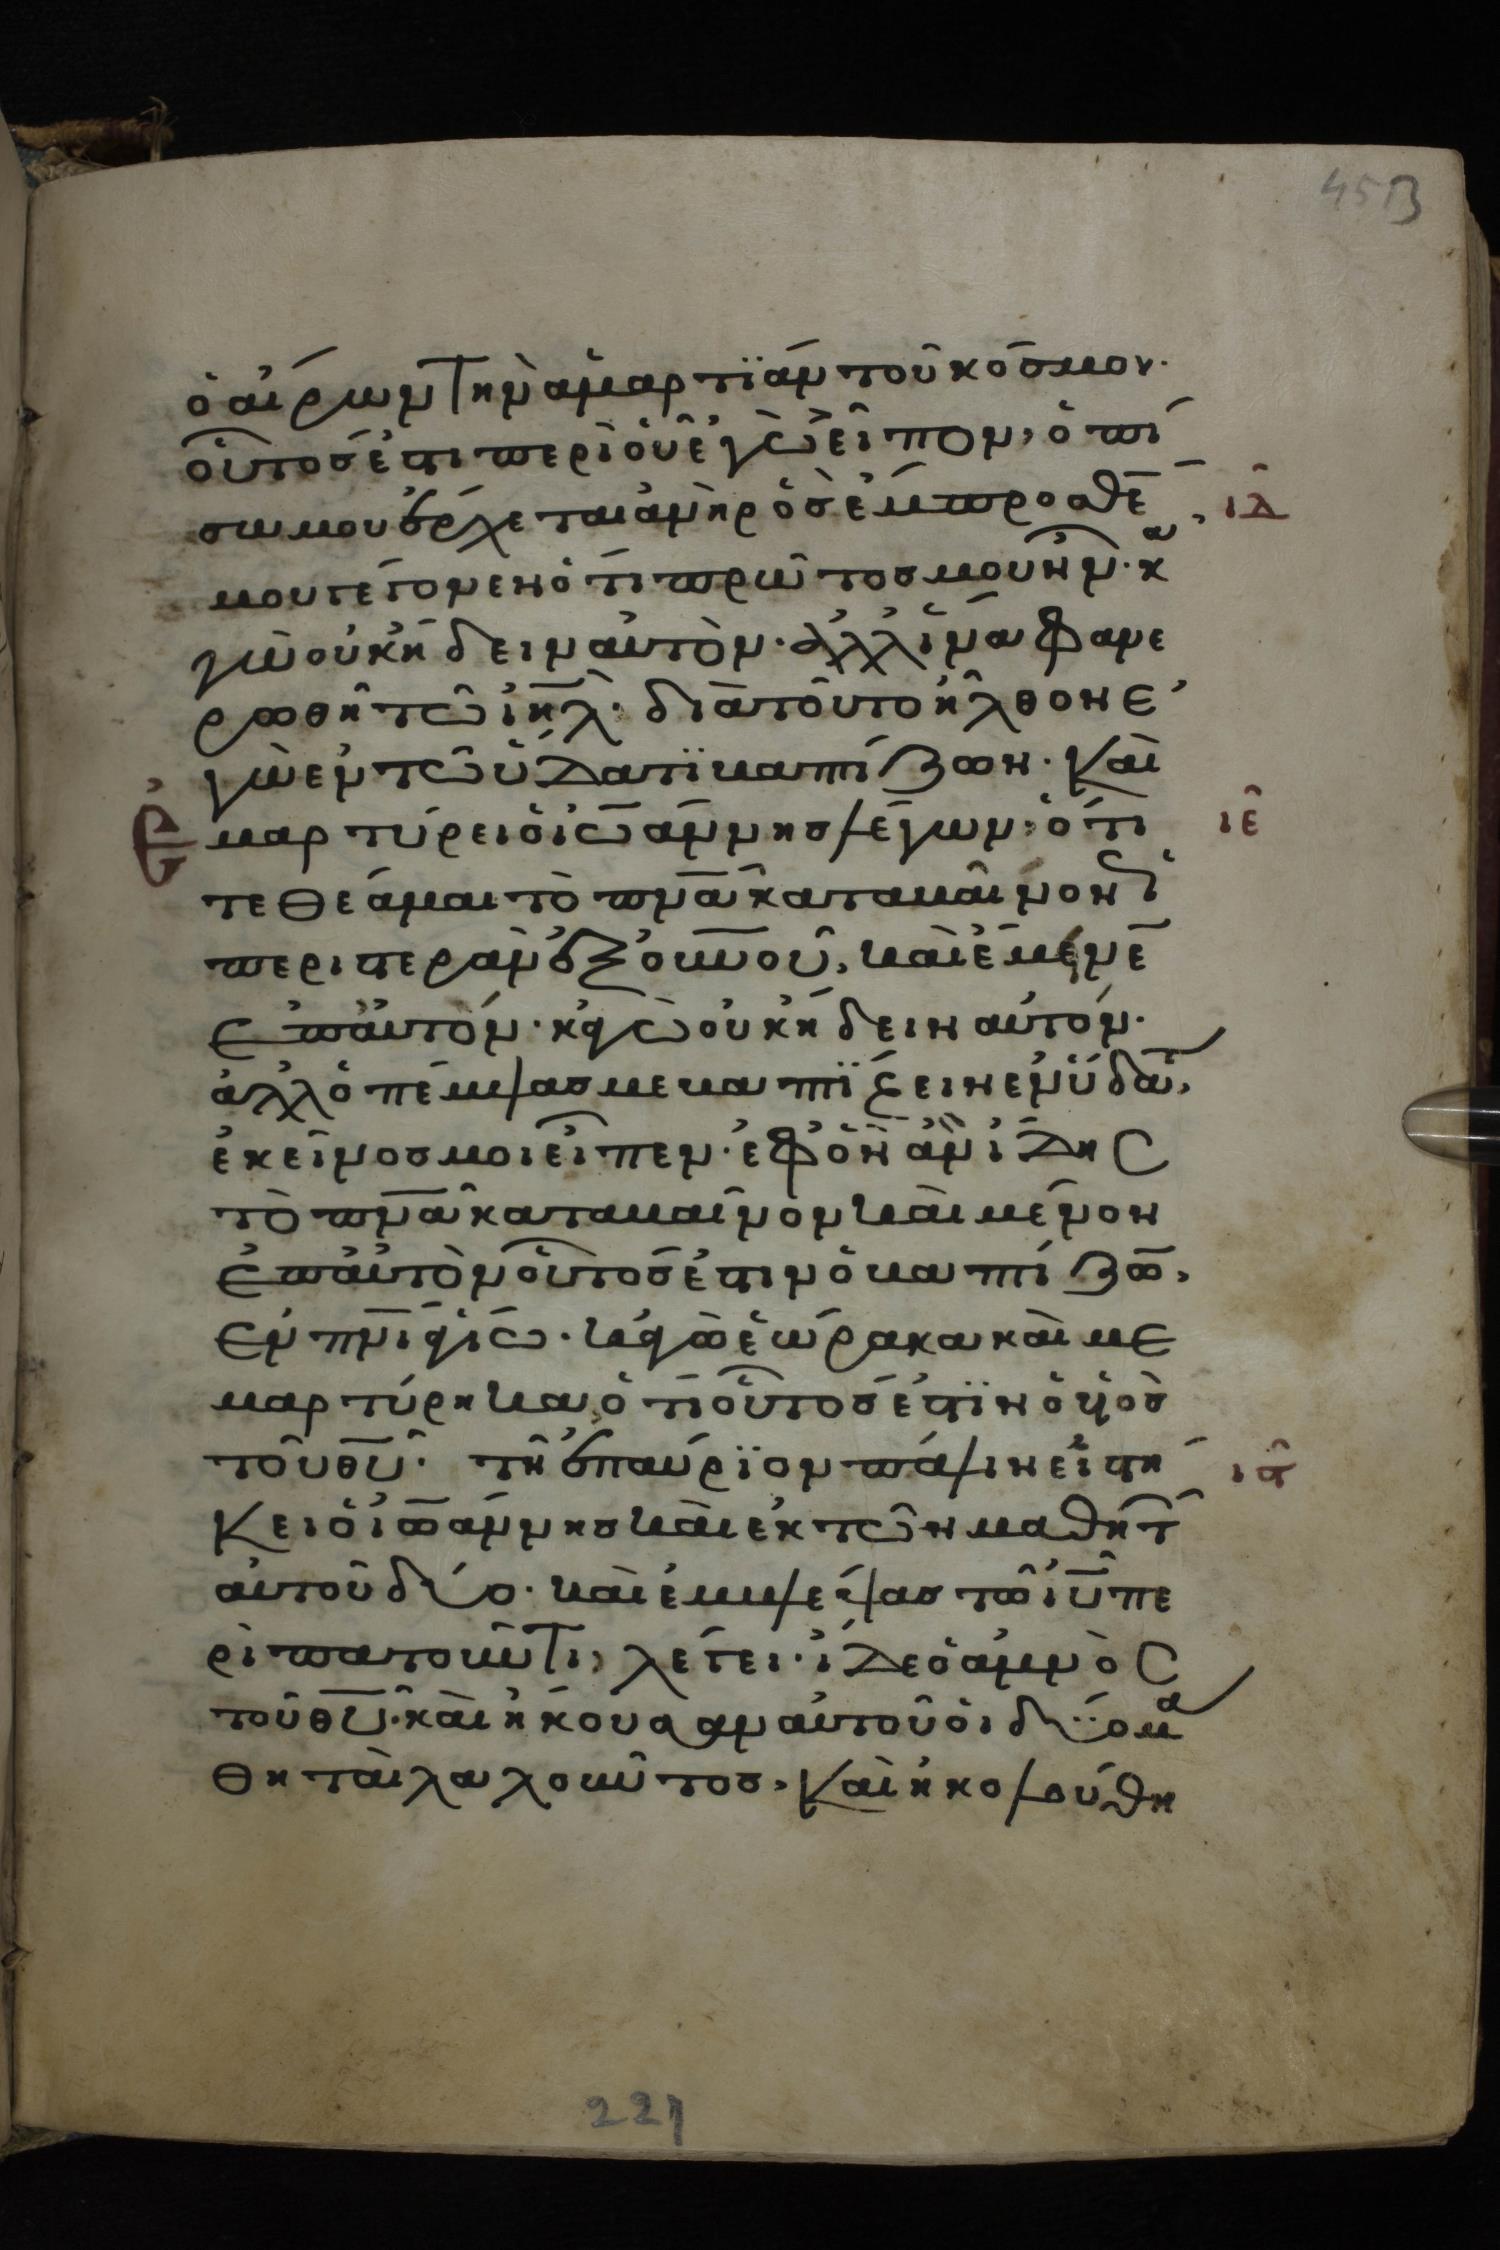 45β
ὁ αἴρων τὴν ἁμαρτΐαν τοῦ κόσμου·
οὗτος ἐστι περὶ οὗ ἐγὼ εἶπον, ὀπί
σω μου ἔρχεται ἀνὴρ ὃς ἔμπροσθέ
ιδ
μου γέγονεν ὅτι πρῶτος μου ἦν· κα
γὼ οὐκ ἤδειν αὐτὸν· ἀλλ ἵνα φανε
ρωθῆ τῶ ιηλ· διὰ τοῦτο ἦλθον ἐ
γὼ ἐν τῶ ὕδατϊ βαπτίζων· Καὶ
Ἐμαρτύρει ὁ ἰωάννης λέγων, ὅτι
ιε
τεθέαμαι τὸ πνα καταβαῖνον ὡ
περιστερὰν ἐξ οὐνοῦ, καὶ ἔμεινε
ἐπ αὐτόν· κἀγὼ οὐκ ἤδειν αὐτόν·
ἀλλ ὁ πέμψας με βαπτΐζειν ἐν ὕδατ,
ἐκεῖνος μοι εἶπεν· ἐφ ὃν ἂν ἴδης
τὸ πνα καταβαῖνον καὶ μένον
ἐπ αὐτὸν οὗτος ἐστιν ὁ βαπτίζω,
ἐν πνι ἁγίω· κἀγὼ ἑώρακα καὶ με
μαρτύρηκα, ὅτι οὗτος ἐστϊν ὁ υἱὸς
τοῦ θυ· τῆ ἐπαύρϊον πάλιν εἱστή
ις
κει ὁ ἰωάννης καὶ ἐκ τῶν μαθητ
αὐτοῦ δύο· καὶ ἐμβλέψας τῶ ιυ πε
ριπατοῦντι, λέγει· ἴδε ὁ ἀμνὸς
τοῦ θυ· καὶ ἤκουσαν αὐτοῦ οἱ δύο μα
θηταὶ λαλοῦντος, καὶ ἠκολούθη
221